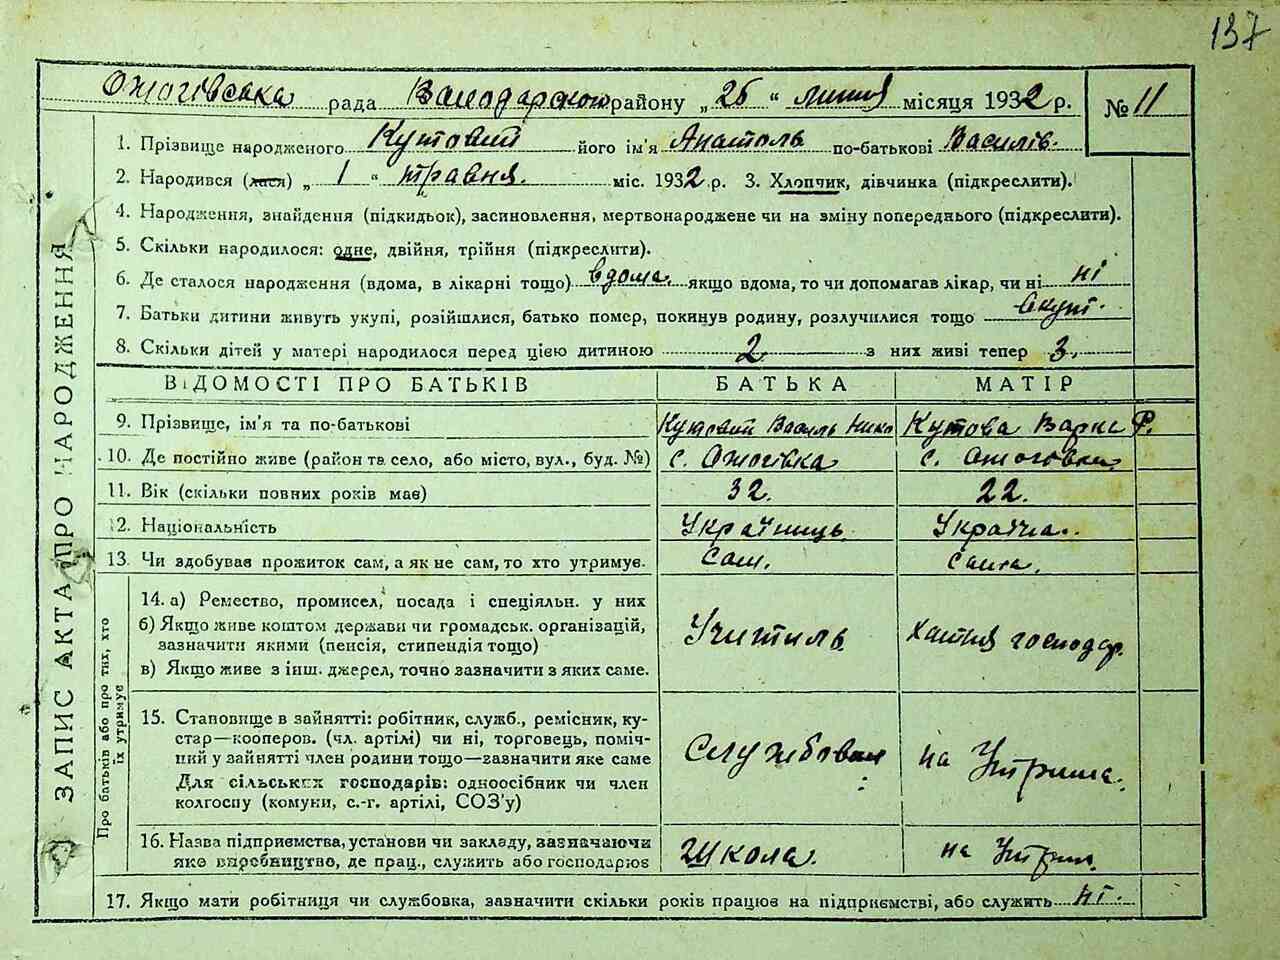 137
Ожогівська рада Володарського району „26“ липня місяця 1932 р. № 11
1. Прізвище народженого Кутовий його ім'я Анатоль по-батькові Василів.
2. Народився (лася) „1“ травня. міс. 1932 р. 3. Хлопчик, дівчинка (підкреслити).
4. Народження, знайдення (підкидьок), засиновлення, мертвонароджене чи на зміну попереднього (підкреслити).
5. Скільки народилося: одне, двійня, трійня (підкреслити).
6. Де сталося народження (вдома, в лікарні тощо) вдома. якщо вдома, то чи допомагав лікар, чи ні ні
7. Батьки дитини живуть укупі, розійшлися, батько помер, покинув родину, розлучилися тощо вкуп.
8. Скільки дітей у матері народилося перед цією дитиною 2 з них живі тепер 3.
ВІДОМОСТІ ПРО БАТЬКІВ БАТЬКА МАТІР
9. Прізвище, ім'я та по-батькові Кутовий Василь Ники Кутова Варка Р.
10. Де постійно живе (район та село, або місто, вул., буд. №) с. Ожогівка с. Ожоговка
11. Вік (скільки повних років має) 32. 22.
12. Національність Українець Українка.
13. Чи здобував прожиток сам, а як не сам, то хто утримує. Сам. Сама.
14. а) Ремество, промисел, посада і спеціяльн. у них
б) Якщо живе коштом держави чи громадськ. організацій, Учитиль Хатня господар.
зазначити якими (пенсія, стипендія тощо)
в) Якщо живе з інш. джерел, точно зазначити з яких саме.
15. Становище в зайнятті: робітник, служб., ремісник, ку-
стар—кооперов. (чл. артілі) чи ні, торговець, поміч-
ний у зайнятті член родини тощо—зазначити яке саме Службовий на Утрима.
Для сільських господарів: одноосібник чи член
колгоспу (комуни, с.-г. артілі, СОЗ'у)
16. Назва підприємства, установи чи закладу, зазначаючи
яке виробництво, де прац., служить або господарює Школа. на Утрим.
17. Якщо мати робітниця чи службовка, зазначити скільки років працює на підприємстві, або служить ні.
ЗАПИС АКТА ПРО НАРОДЖЕННЯ
Про батьків або про тих, хто
їх утримує